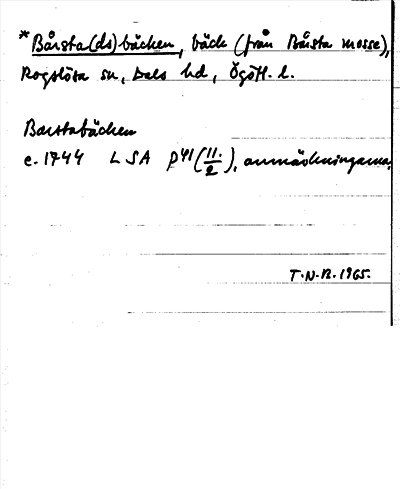 *Bårsta(ds)bäcken, bäck (från Bårsta mosse),
Rogslösa sn, Dals hd, Ögötl. l.
Barstabäcken
c. 1744 LSA P41 (11:/2), anmärkningarna.
T.N.R. 1965.